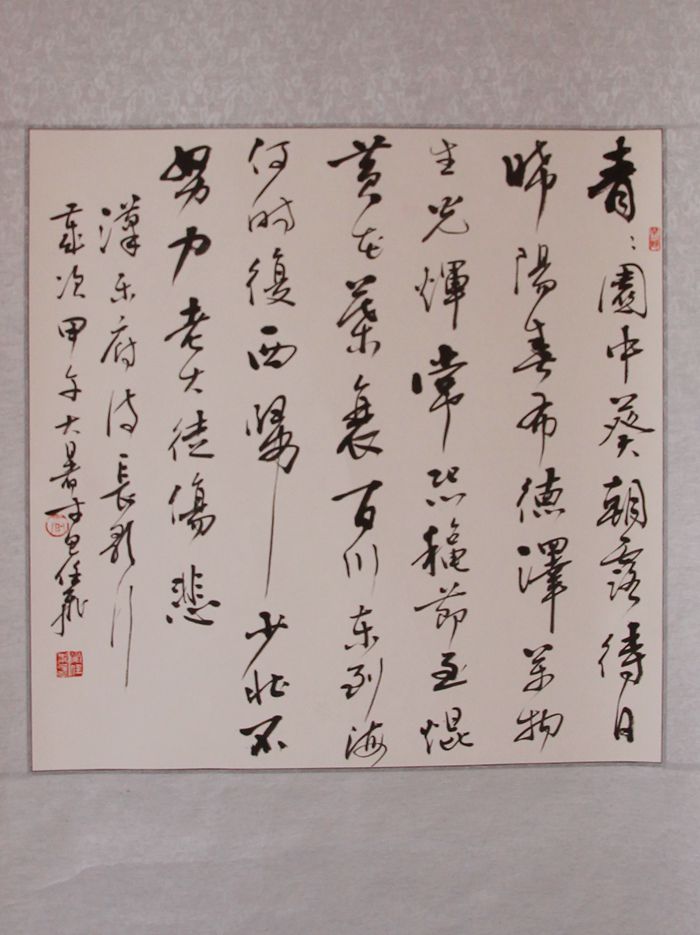 青〻園中葵朝露待日
晞陽春布德澤萬物
生光煇常恐穐節至焜
黄花葉衰百川東到海
何時復西歸少壯不
努力老大徒傷悲
漢樂府詩長歌行
歲次甲午大暑